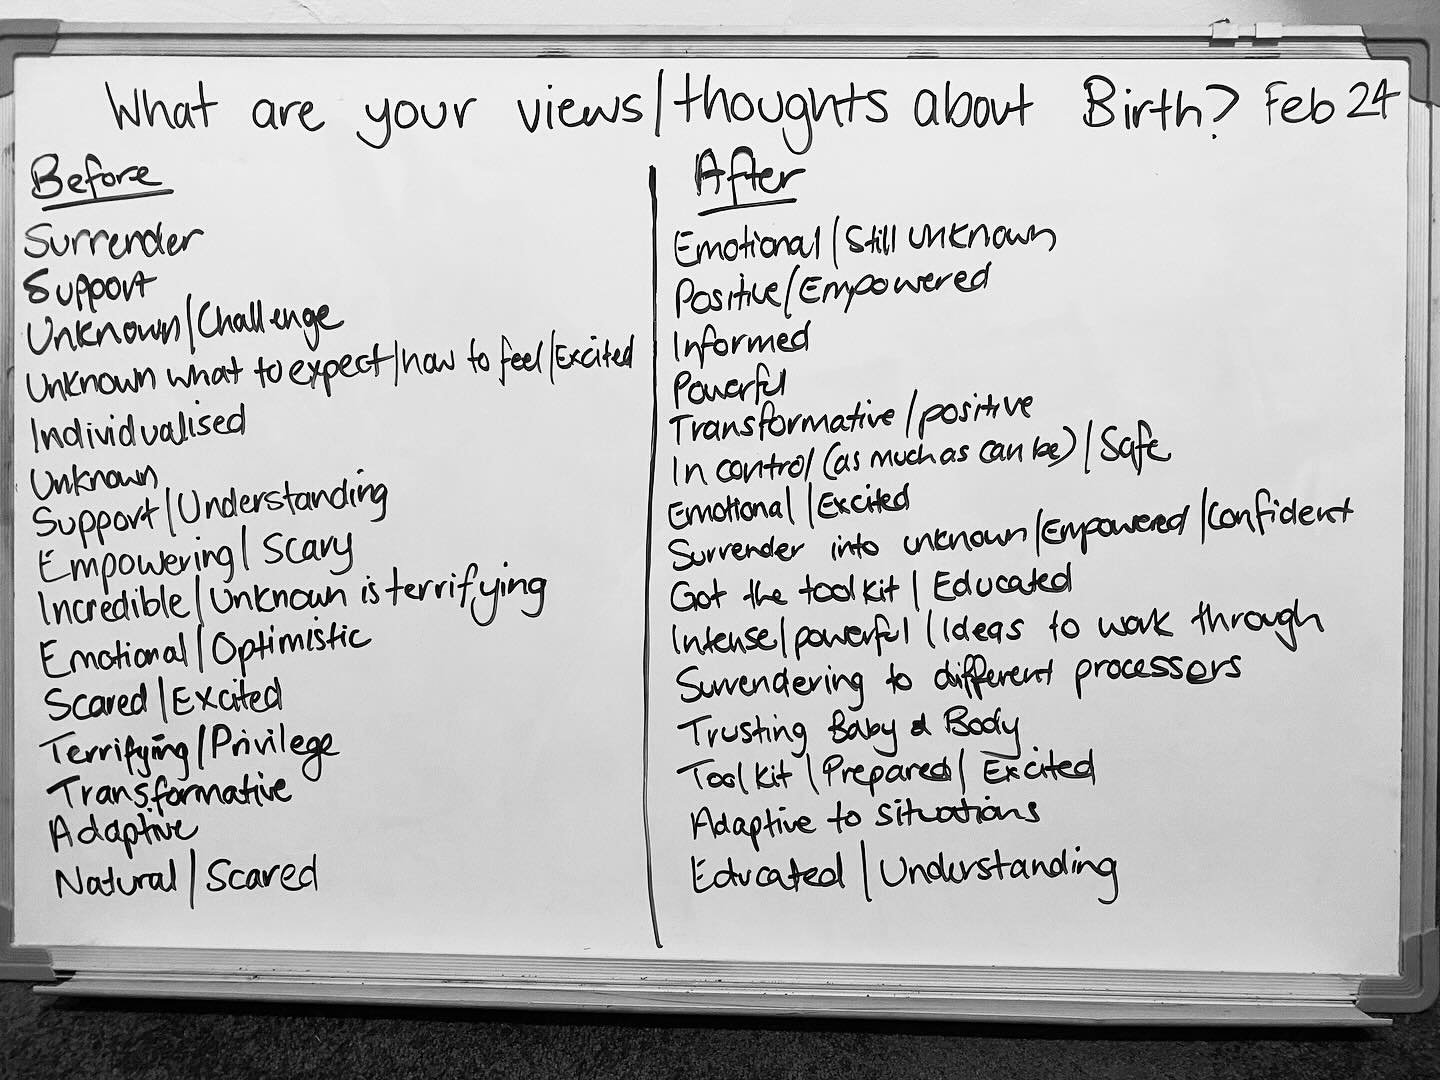 What are your views/thoughts about Birth? Feb 24
Before
Surrender
Support
Unknown/Challenge
Unknown what to expect/how to feel/Excited
Individualised
Unknown
Support/Understanding
Empowering/Scary
Incredible/Unknown is terrifying
Emotional/Optimistic
Scared/Excited
Terrifying/Privilege
Transformative
Adaptive
Natural/Scared
After
Emotional/Still unknown
Positive/Empowered
Informed
Powerful
Transformative/positive
In control (as much as can be)/Safe
Emotional/Excited
Surrender into unknown/Empowered/Confident
Got the toolkit/Educated
Intense/powerful/Ideas to work through
Surrendering to different processers
Trusting Baby & Body
Toolkit/Prepared/Excited
Adaptive to situations
Educated/Understanding